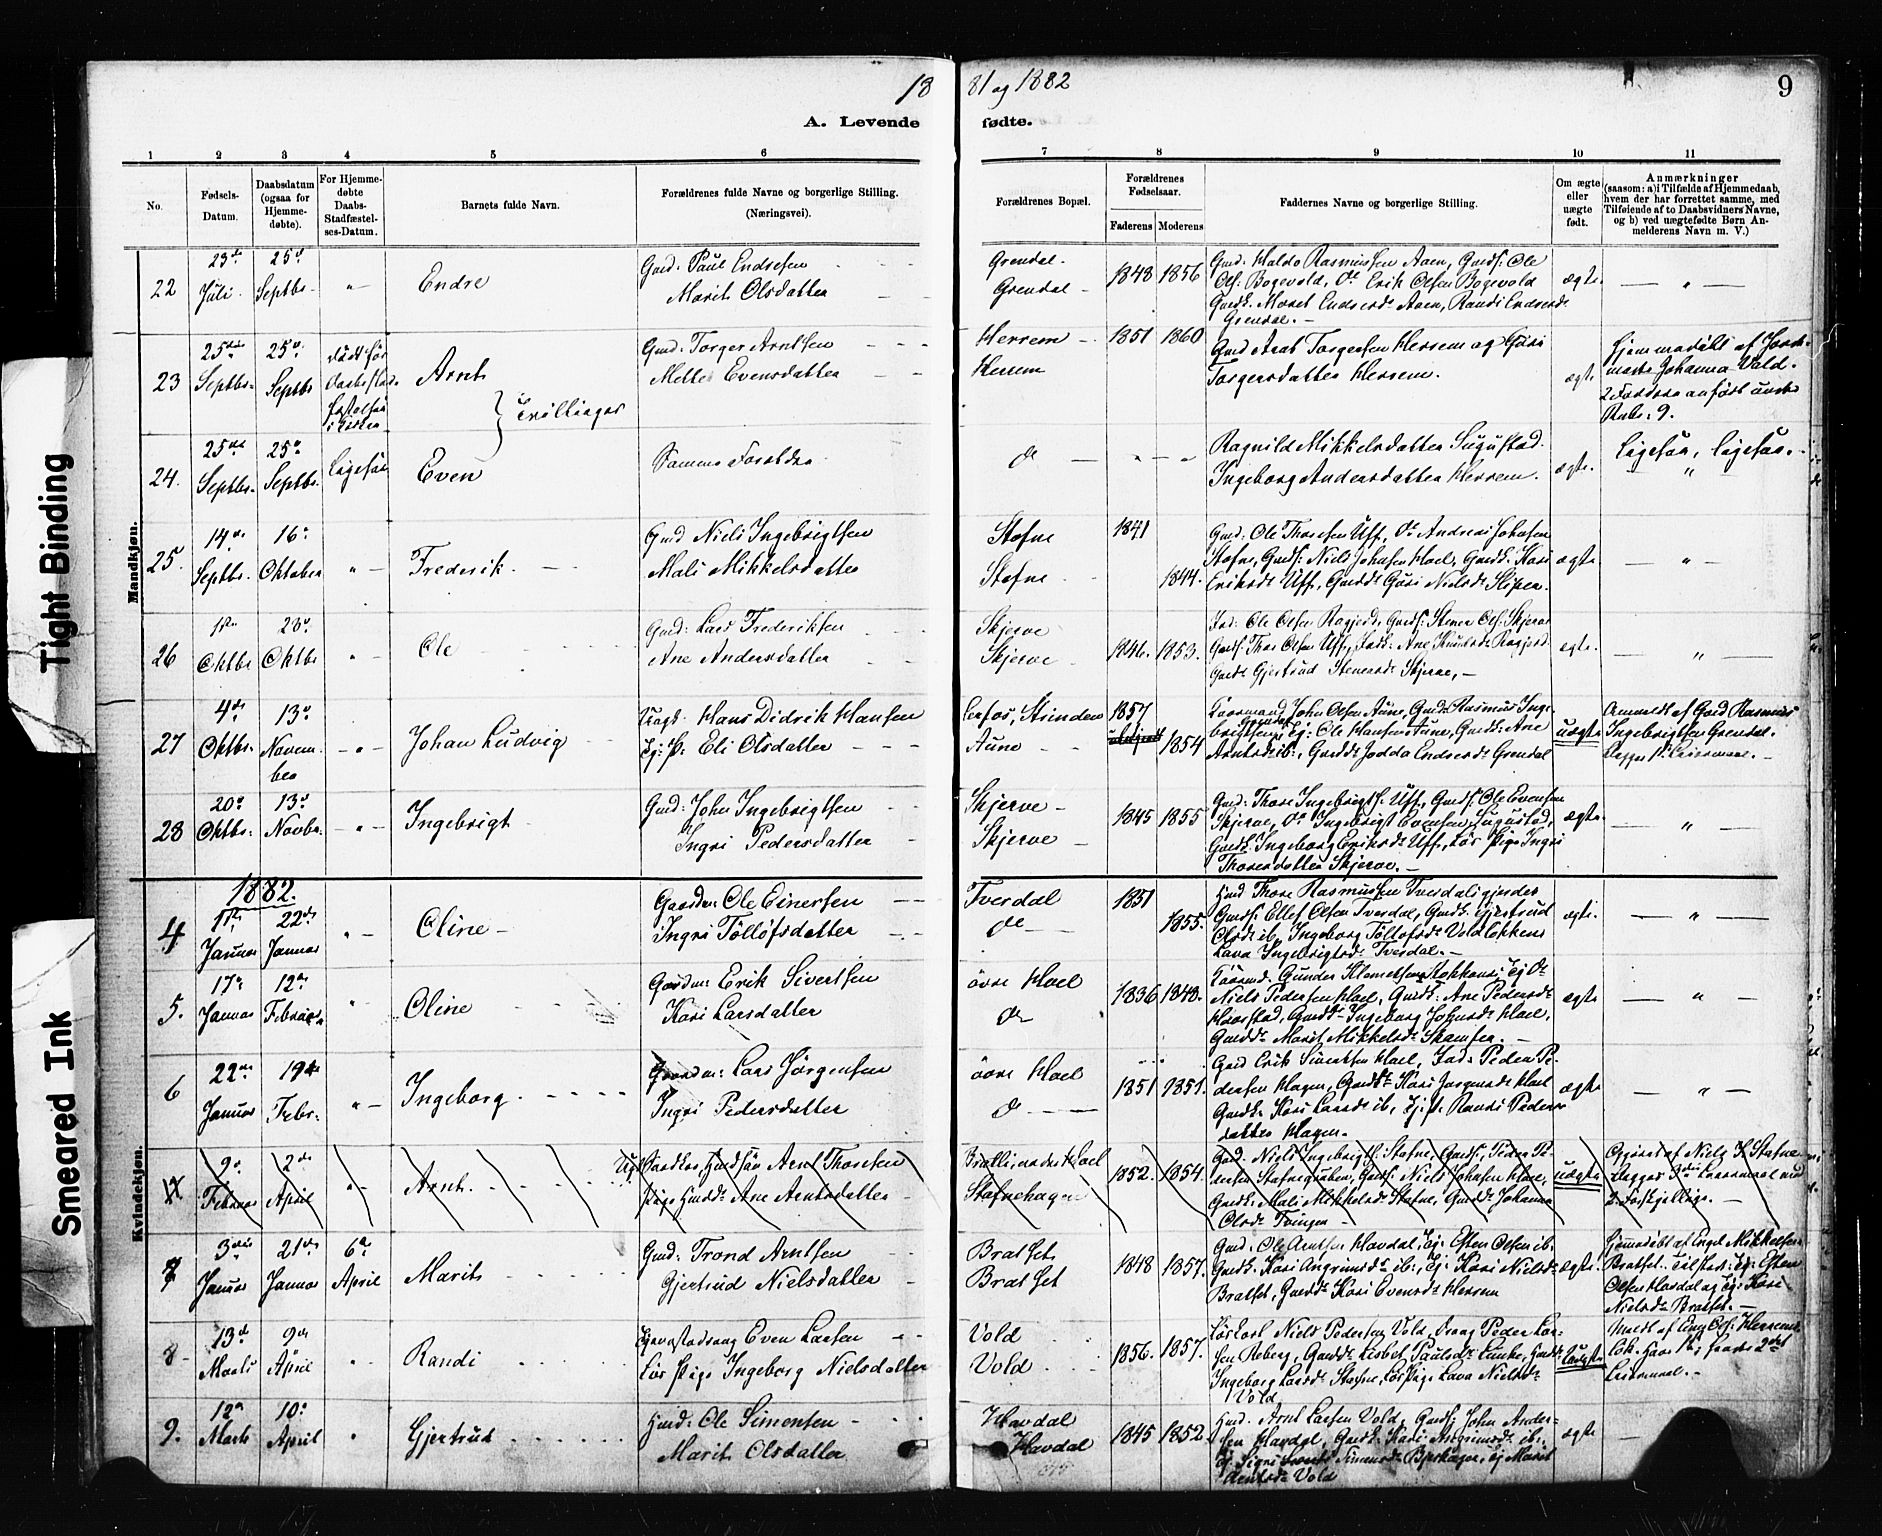 18 81 og 1882
9
A. Levende fødte.
1 2 3 4 5 6 7 8 9 10 11
No.
Fødsels-Datum.
Daabsdatum (ogsaa for Hjemme-døbte).
For Hjemme-døbte Daabs-Stadfæstel-ses-Datum.
Barnets fulde Navn.
Forældrenes fulde Navne og borgerlige Stilling.
(Næringsvei).
Forældrenes Bopæl.
Forældrenes Fødselsaar.
Faderens Moderens
Faddernes Navne og borgerlige Stilling.
Om ægte eller uægte født.
Anmærkninger
(saasom: a) i Tilfælde af Hjemmedaab,
hvem der har forrettet samme, med
Tilføiende af to Daabsvidners Navne,
og b) ved uægtefødte Børn An-
melderens Navn m. V.)
Mandkjøn.
22 23de Juli 25d Septbr. " Endre
Gmd: Paul Endresen
Marit Olsdatter
Grendal
Grendal
1848 1856
Gmd: Haldo Rasmussen Aaen, Gmds: Ole
Ols: Bøgevold, Do Erik Olsen Bøgevold
Gmdk. Marit Endresd: Aaen, Randi Endresdr
Grendal.
ægte. "
23 25de Septbr. 25d Septbr
Arnt
Gmd: Torger Arntsen
Mette Evensdatter
Herrem
Herrem
1851 1860
Gmd Arnt Torgersen Herrem og Guri
Torgersdatter Herrem.
ægte
Hjemmedøbt af Jord-
moder Johanna Vold.
2 Faddere anført under
Rubr: 9.
Tvillinger
24. 25de Septbr. 25d Septbr. Ligesaa
Even
Samme Forældre
do " "
Ragnild Mikkelsdatter Sugustad.
Ingeborg Andersdatter Herrem.
ægte. Ligesaa, ligesaa.
25. 14de Septbr. 16d Oktober " Frederik.
Gmd Niels Ingebrigtsen
Mali Mikkelsdatter
Stofne
Stofne
1841
1844.
Gmd: Ole Thoresen Uff, Do Andreas Johnsen
Stofne, Gmds: Niels Johnsen Hoel, Gmdk: Kari
Eriksdr Uff, Gmdd: Guri Nielsdr Slipen.
ægte. "
26 1ste Oktbr 23d Oktbr " Ole
Gmd: Lars Frederiksen
Ane Andersdatter
Skjerve
Skjerve
1846. 1853.
Gmds: Thor Olsen Uff,
Gmdd: Gjertrud Stenersdr Skjerve,
ægte. "
27 4de Oktbr. 13d November " Johan Ludvig
Ungk: Hans Didrik Hansen
Ej: P: Eli Olsdatter
Lerfos, Strinden
Aune
1857
1854
John Olsen Aune, Gmd: Rasmus Inge-
brigtsen Grendal, Ej: Ole Hansen Aune, Gmdk: Ane
Arntsdr ib:, Gmdd: Jodda Endresdr Grendal
uægte
Anmeldt af Gmd Rasmus
Ingebrigtsen Grendal.
Begges 1ste Leiermaal.
28 20d Oktbr. 13d Novbr. " Ingebrigt
Gmd: John Ingebrigtsen
Ingri Pedersdatter
Skjerve
Skjerve
1845 1855
Gmd: Thore Ingebrigts: Uff, Gmds: Ole Evensen
Skjerve, Do Ingebrigt Evensen Sugustad,
Gmdk: Ingeborg Eriksdr Uff, Lør Pige Ingri
Thoresdatter Skjerve.
ægte. "
Kvindekjøn.
1882.
4 11te Januar 22de Januar " Oline
Gaardm: Ole Einersen
Ingri Tölløfsdatter
Tverdal
do
1851
1855.
Hmd Thore Rasmussen Tverdalsgjerdet
Gmds: Ellef Olsen Tverdal, Gmdk: Gjertrud
Olsdr ib, Ingeborg Tölløfsdr Voldløkken
Lava Ingebrigtsdr Tverdal.
ægte. "
5. 17de Januar 12te Februar " Oline
Gaardm: Erik Sivertsen
Kari Larsdatter
øvre Hoel
do
1836 1848.
Gunder Klemetsen Ej: do
Niels Pedersen Hoel, Gmdk: Ane Pedersdr
Haarstad, Gmdd: Ingeborg Johnsdr Hoel,
Gmdd: Marit Mikkelsdr Skamfer.
ægte "
6 22de Januar 19de Febr. " Ingeborg.
Gaardm: Lars Jørgensen
Ingri Pedersdatter
øvre Hoel
do
1851 1851.
Gmd Erik Sivertsen Hoel, Peder Pe-
dersen Hagen, Gmdd: Kari Jørgensdr Hoel
Gmdk: Kari Larsdr ib, Ej: P. Randi Peders-
datter Hagen.
ægte "
9d Februar 2de April " Arnt.
Arnt Thoresen
Pige Ane Arntsdatter
Bratli, nedre Hoel
Stofnehagen
1852. 1854.
Gmd: Niels Ingebrigts: Stofne, Gmds: Peder Pe-
dersen Stofnegruben, Gmds: Niels Johnsen Hoel,
Gmdk: Mali Mikkelsdr Stofne, Gmdd: Johanna
Olsdr Tvingen
uægte
Opgivet af Niels I. Stofne
Begges 3die Leiermaal med
2 forskjellige.
7 3die Januar 21de Januar 6te April Marit
Gmd: Trond Arntsen
Gjertrud Nielsdatter
Bratset
Bratset
1848 1857.
Gmd: Ole Arntsen Havdal, Ej: Esten Olsen ib.
Gmdk: Kari Angrimsdr ib: Ej: Kari Nielsdr
Bratset, Gmdd: Kari Evensdr Herrem
ægte.
Hjemmedøbt af Engel Mikkelsen
Bratset. Tilsted: Ej: Esten
Olsen Havdal og Ej: Kari
Nielsdr Bratset.
8 13de Marts 9de April " Randi
Even Larsen
Lør Pige Ingeborg Nielsdatter
Vold
Vold
1856. 1857.
Lørkarl Niels Pedersen Vold, Peder Lar-
sen Aeberg, Gmdd: Lisbet Paulsdr Lunke,
Ingeborg Larsdr Stofne, Lør Pige Lava Nielsdr
Vold
uægte
9. 12te Marts 10d April " Gjertrud
Hmd: Ole Simonsen
Marit Olsdatter
Havdal
Havdal
1845 1852
Hmd. Arnt Larsen Vold, Gmds: John Ander-
sen Havdal, Gmdk: Kari Angrimsdr ib:
Vold
ægte
Tight Binding
Smeared Ink